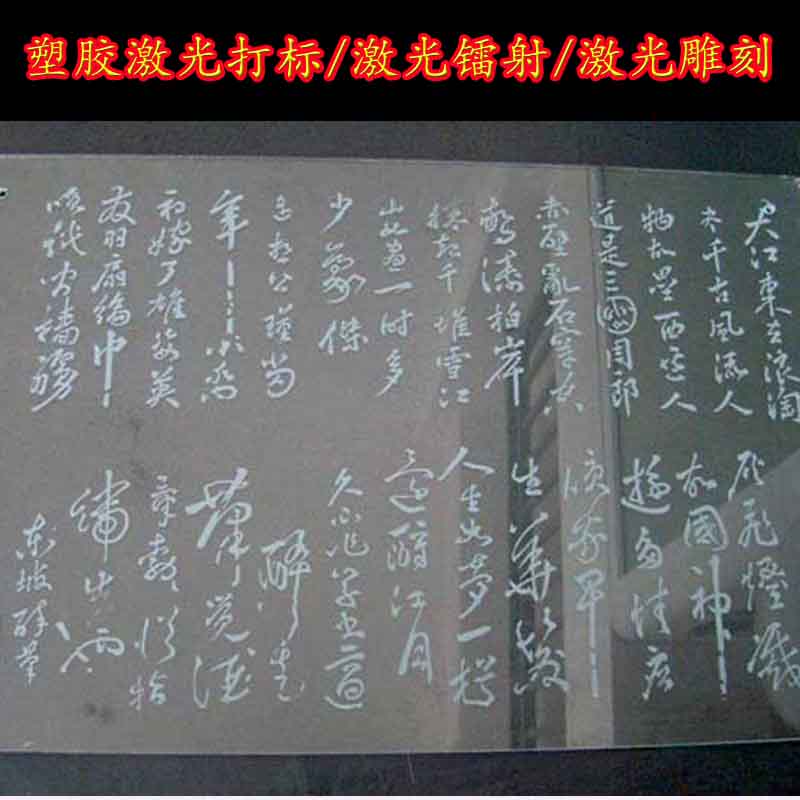 塑胶激光打标/激光镭射/激光雕刻
大江東去浪淘
尽千古風流人
物故壘西邊人
道是三國周郎
赤壁亂石穿空
驚濤拍岸
捲起千堆雪江
山如畫一时多
少豪傑
遥想公瑾當
年小喬
初嫁了雄姿英
发羽扇綸巾
談笑间檣櫓
灰飛煙滅
故國神
遊多情应
笑我早
生華髮
人生如夢一樽
還酹江月
久不作草書適
醉走
筆覺酒
氣勃勃從指
端出也
东坡醉筆